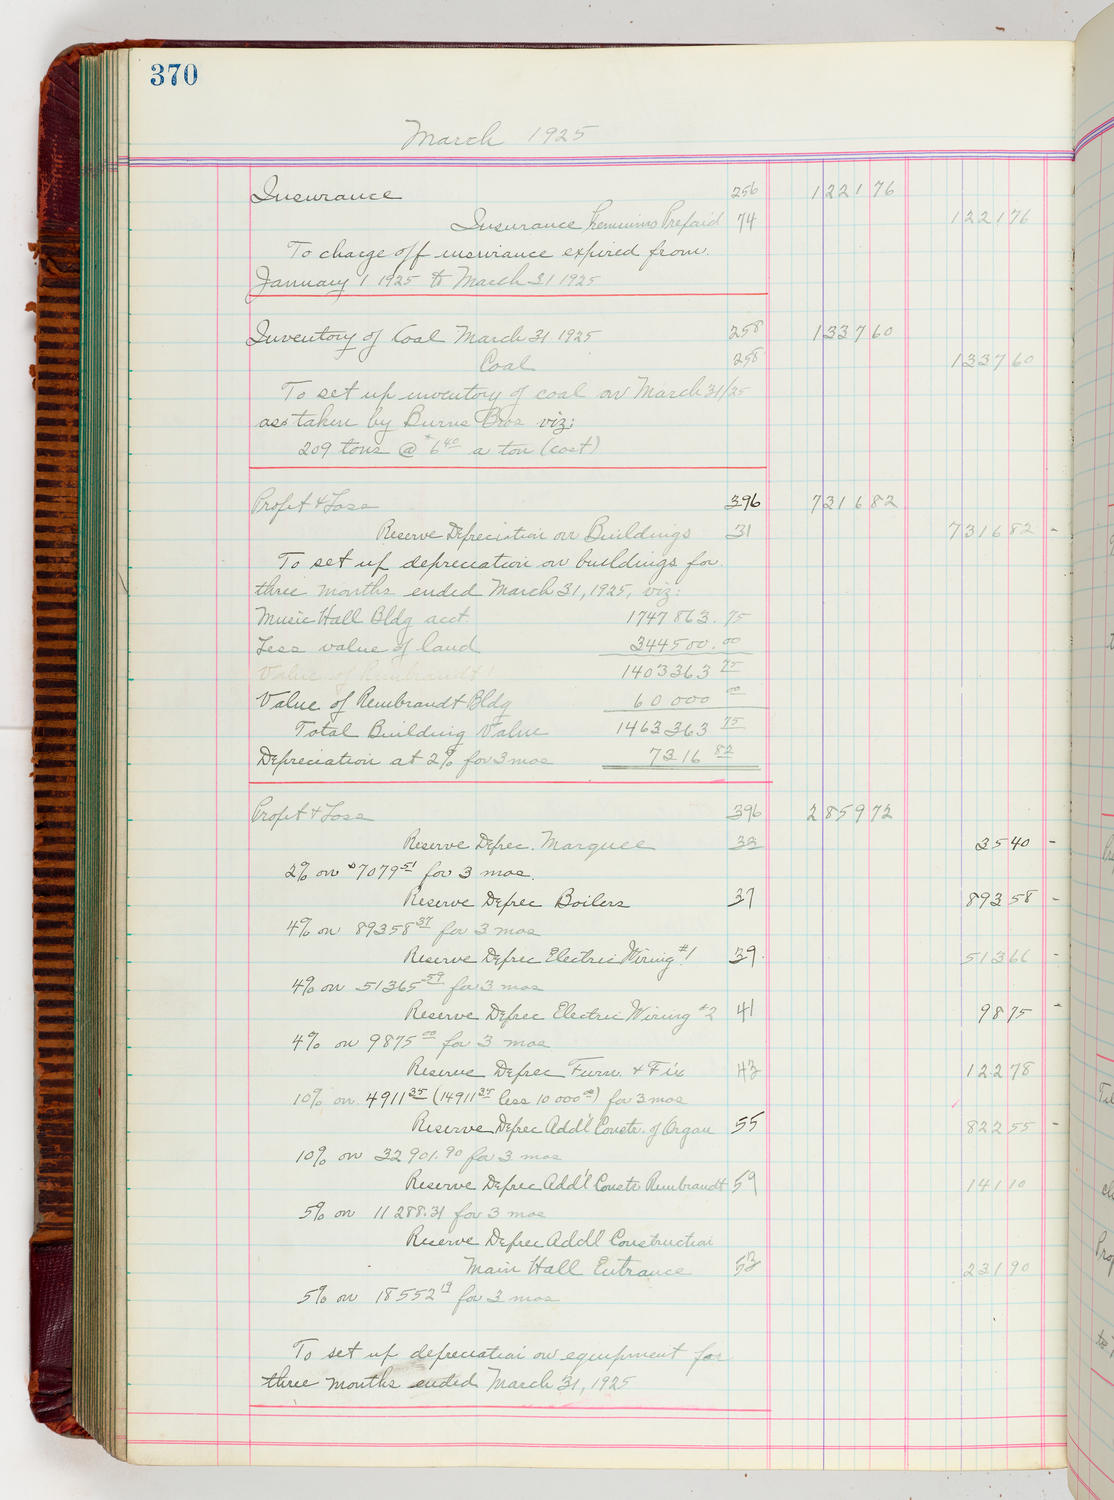 370
March 1925
Insurance 256 1221 76
Insurance Premiums Prepaid 74 1221 76
To charge off insurance expired from
January 1 1925 to March 31 1925
Inventory of Coal March 31 1925 258 1337 60
Coal 258 1337 60
To set up inventory of coal on March 31/25
as taken by Burns Bros viz:
209 tons @ $6 40 a ton (cost)
Profit & Loss 396 7316 82
Reserve Depreciation on Buildings 31 7316 82 -
To set up depreciation on buildings for
three months ended March 31, 1925, viz:
Music Hall Bldg acct. 1747 863. 75
Less value of land 344500. 00
Value of Rembrandt 1403363 75
Value of Rembrandt Bldg 60 000 00
Total Building Value 1463 363 75
Depreciation at 2% for 3 mos 7316 82
Profit & Loss 396 2859 72
Reserve Deprec. Marquee 33 35 40 -
2% on $7079 51 for 3 mos.
Reserve Deprec Boilers 37 893 58 -
4% on 89358 37 for 3 mos
Reserve Deprec Electric Wiring #1 39 513 66 -
4% on 51365 59 for 3 mos
Reserve Deprec Electric Wiring #2 41 98 75 -
4% on 9875 00 for 3 mos
Reserve Deprec Furn. & Fix 43 122 78
10% on 4911 35 (14911 35 less 10 000 00) for 3 mos
Reserve Deprec Add'l Constr. of Organ 55 822 55 -
10% on 32 901.90 for 3 mos
Reserve Deprec Add'l Constr Rembrandt 59 141 10
5% on 11 288.31 for 3 mos
Reserve Deprec Add'l Construction
Main Hall Entrance 231 90
5% on 18552 19 for 3 mos
To set up depreciation on equipment for
three months ended March 31, 1925